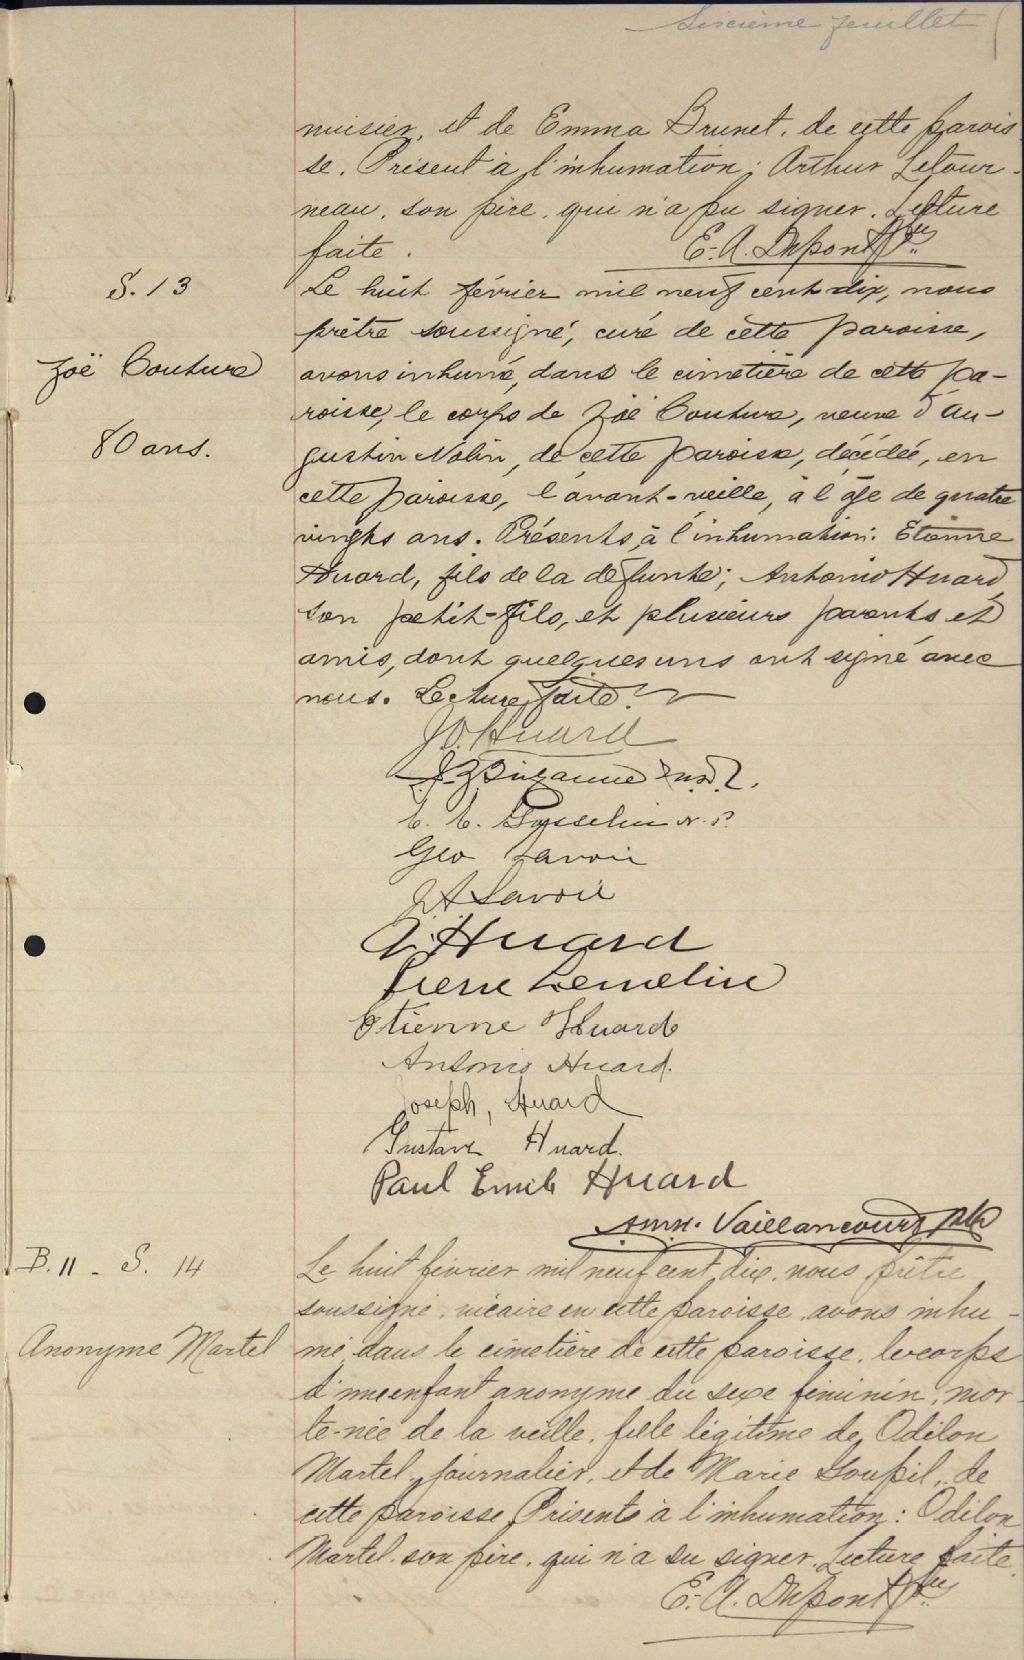 Sixième feuillet
nuisier, et de Emma Brunet, de cette parois
se. Présent à l'inhumation: Arthur Letour-
neau, son père, qui n'a pu signer. Lecture
faite.
E.-A. Dupont Ptre
S. 13
Zoë Couture
80 ans.
Le huit février mil neuf cent dix, nous
prêtre soussigné, curé de cette paroisse,
avons inhumé, dans le cimetière de cette pa-
roisse, le corps de Zoë Couture, veuve d'Au-
gustin Nolin, de cette paroisse, décédée, en
cette paroisse, l'avant-veille, à l'âge de quatre
vingts ans. Présents, à l'inhumation: Etienne
Huard, fils de la défunte; Antonio Huard,
son petit-fils, et plusieurs parents et
amis, dont quelques uns ont signé avec
nous. Lecture faite.
J.O. Huard
Gosselin N.P.
Geo Lavoie
J A Lavoie
J. Huard
Pierre Lemelin
Etienne Huard
Antonio Huard.
Joseph, Huard
Gustave Huard.
Paul Emile Huard
Vaillancourt ptre
B. 11 - S. 14
Anonyme Martel
Le huit février mil neuf cent dix, nous prêtre
soussigné, vicaire en cette paroisse, avons inhu-
mé dans le cimetière de cette paroisse, le corps
d'une enfant anonyme du sexe féminin, mor-
te-née de la veille, fille légitime de Odilon
Martel, journalier, et de Marie Goupil, de
cette paroisse. Présents à l'inhumation: Odilon
Martel, son père, qui n'a su signer. Lecture faite.
E.-A. Dupont Ptre